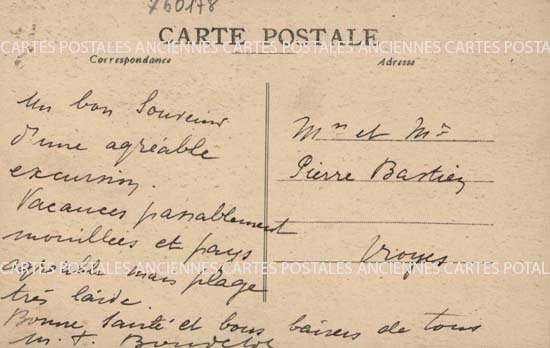 760178
CARTE POSTALE
CARTES POSTALES ANCIENNES CARTES POSTALES ANCIENNES CARTES POSTALES
Correspondance
Adresse
Un bon Souvenir
d'une agréable
excursion.
Vacances passablement
mouillées et pays
agréable mais plage
très laide.
Bonne Santé et bons baisers de tous
M. F.
Mme et Mr
Pierre Bastien
Troyes
CARTES POSTALES ANCIENNES CARTES POSTALES ANCIENNES CARTES POSTALES